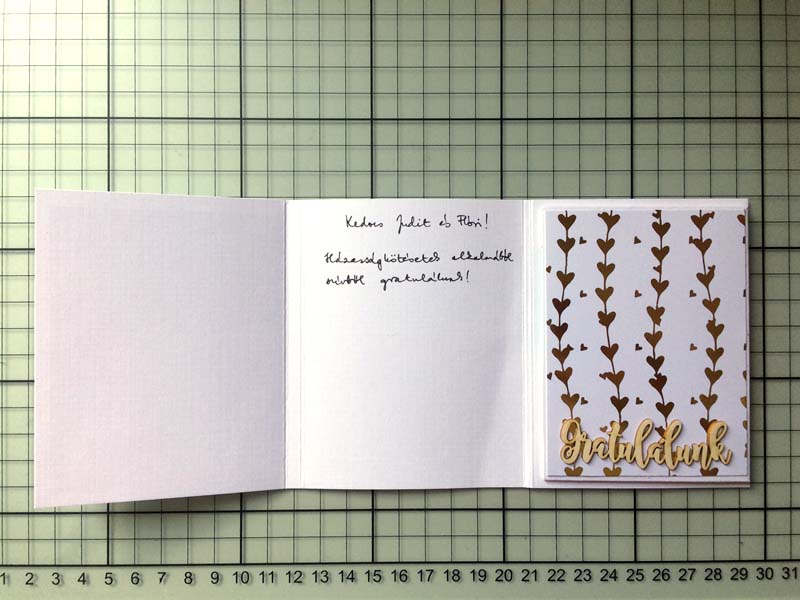 Kedves Judit és Flóri!
Házasságkötésetek alkalmából
szívből gratulálunk!
Gratulálunk
1 2 3 4 5 6 7 8 9 10 11 12 13 14 15 16 17 18 19 20 21 22 23 24 25 26 27 28 29 30 31